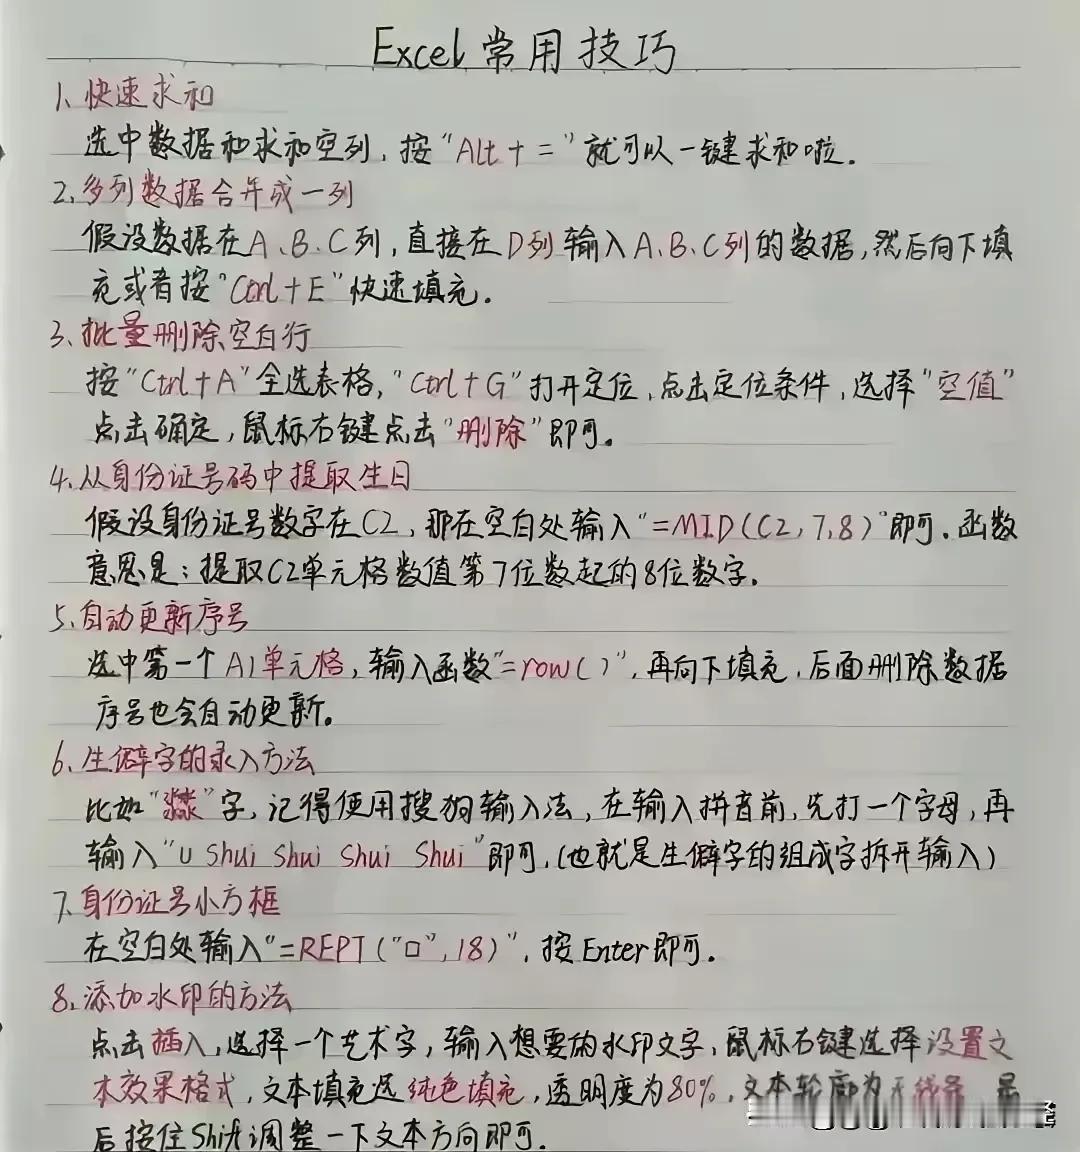 Excel常用技巧
1、快速求和
选中数据和求和空列，按“Alt+=”就可以一键求和啦.
2、多列数据合并成一列
假设数据在A、B、C列，直接在D列输入A、B、C列的数据，然后向下填
充或者按“Ctrl+E”快速填充.
3、批量删除空白行
按“Ctrl+A”全选表格，“Ctrl+G”打开定位，点击定位条件，选择“空值”
点击确定，鼠标右键点击“删除”即可。
4、从身份证号码中提取生日
假设身份证号数字在C2，那在空白处输入“=MID(C2,7,8)”即可.函数
意思是：提取C2单元格数值第7位数起的8位数字.
5、自动更新序号
选中第一个A1单元格，输入函数“=row()”，再向下填充，后面删除数据
序号也会自动更新。
6、生僻字的录入方法
比如“”字，记得使用搜狗输入法，在输入拼音前，先打一个字母，再
输入“U Shui Shui Shui Shui”即可，(也就是生僻字的组成字拆开输入)
7、身份证号小方框
在空白处输入“=REPT("□",18)”，按Enter即可.
8、添加水印的方法
点击插入，选择一个艺术字，输入想要的水印文字，鼠标右键选择设置文
本效果格式，文本填充选纯色填充，透明度为80%，文本轮廓为无线条，最
后按住Shift调整一下文本方向即可.